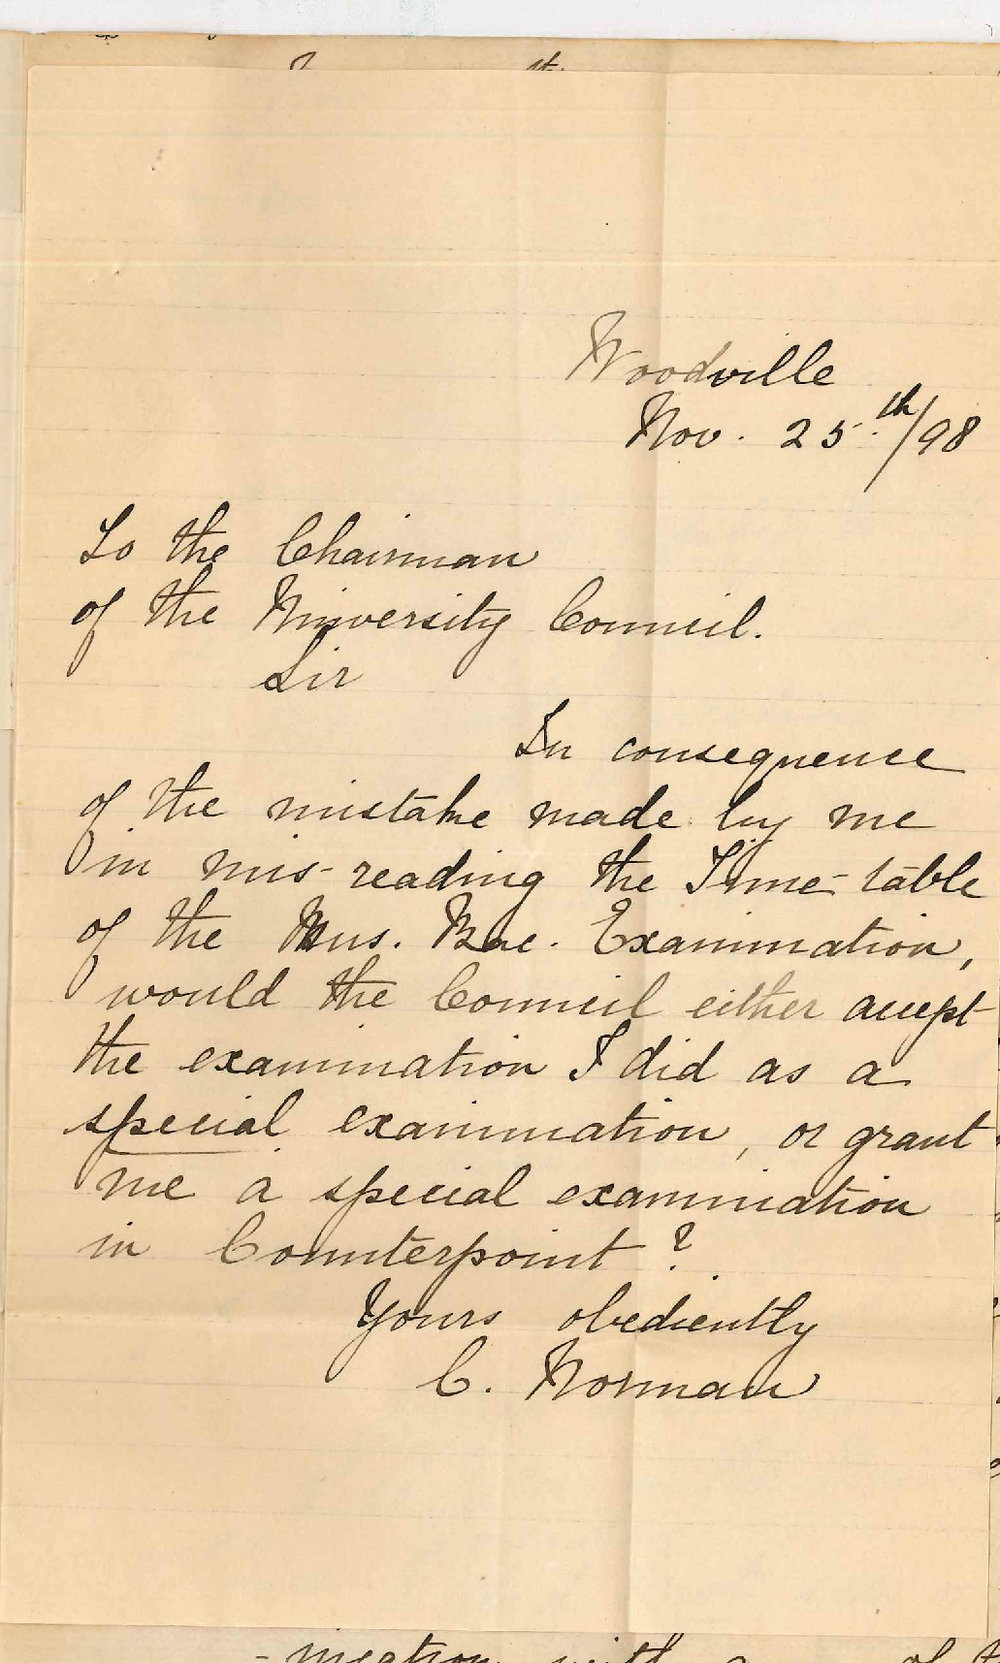 Woodville
Nov. 25.th/98
To the Chairman
of the University Council.
Sir
In consequence
of the mistake made by me
in mis-reading the Time-table
of the Mus. Bac. Examination,
would the Council either accept
the examination I did as a
special examination, or grant
me a special examination
in Counterpoint?
Yours obediently
C. Norman